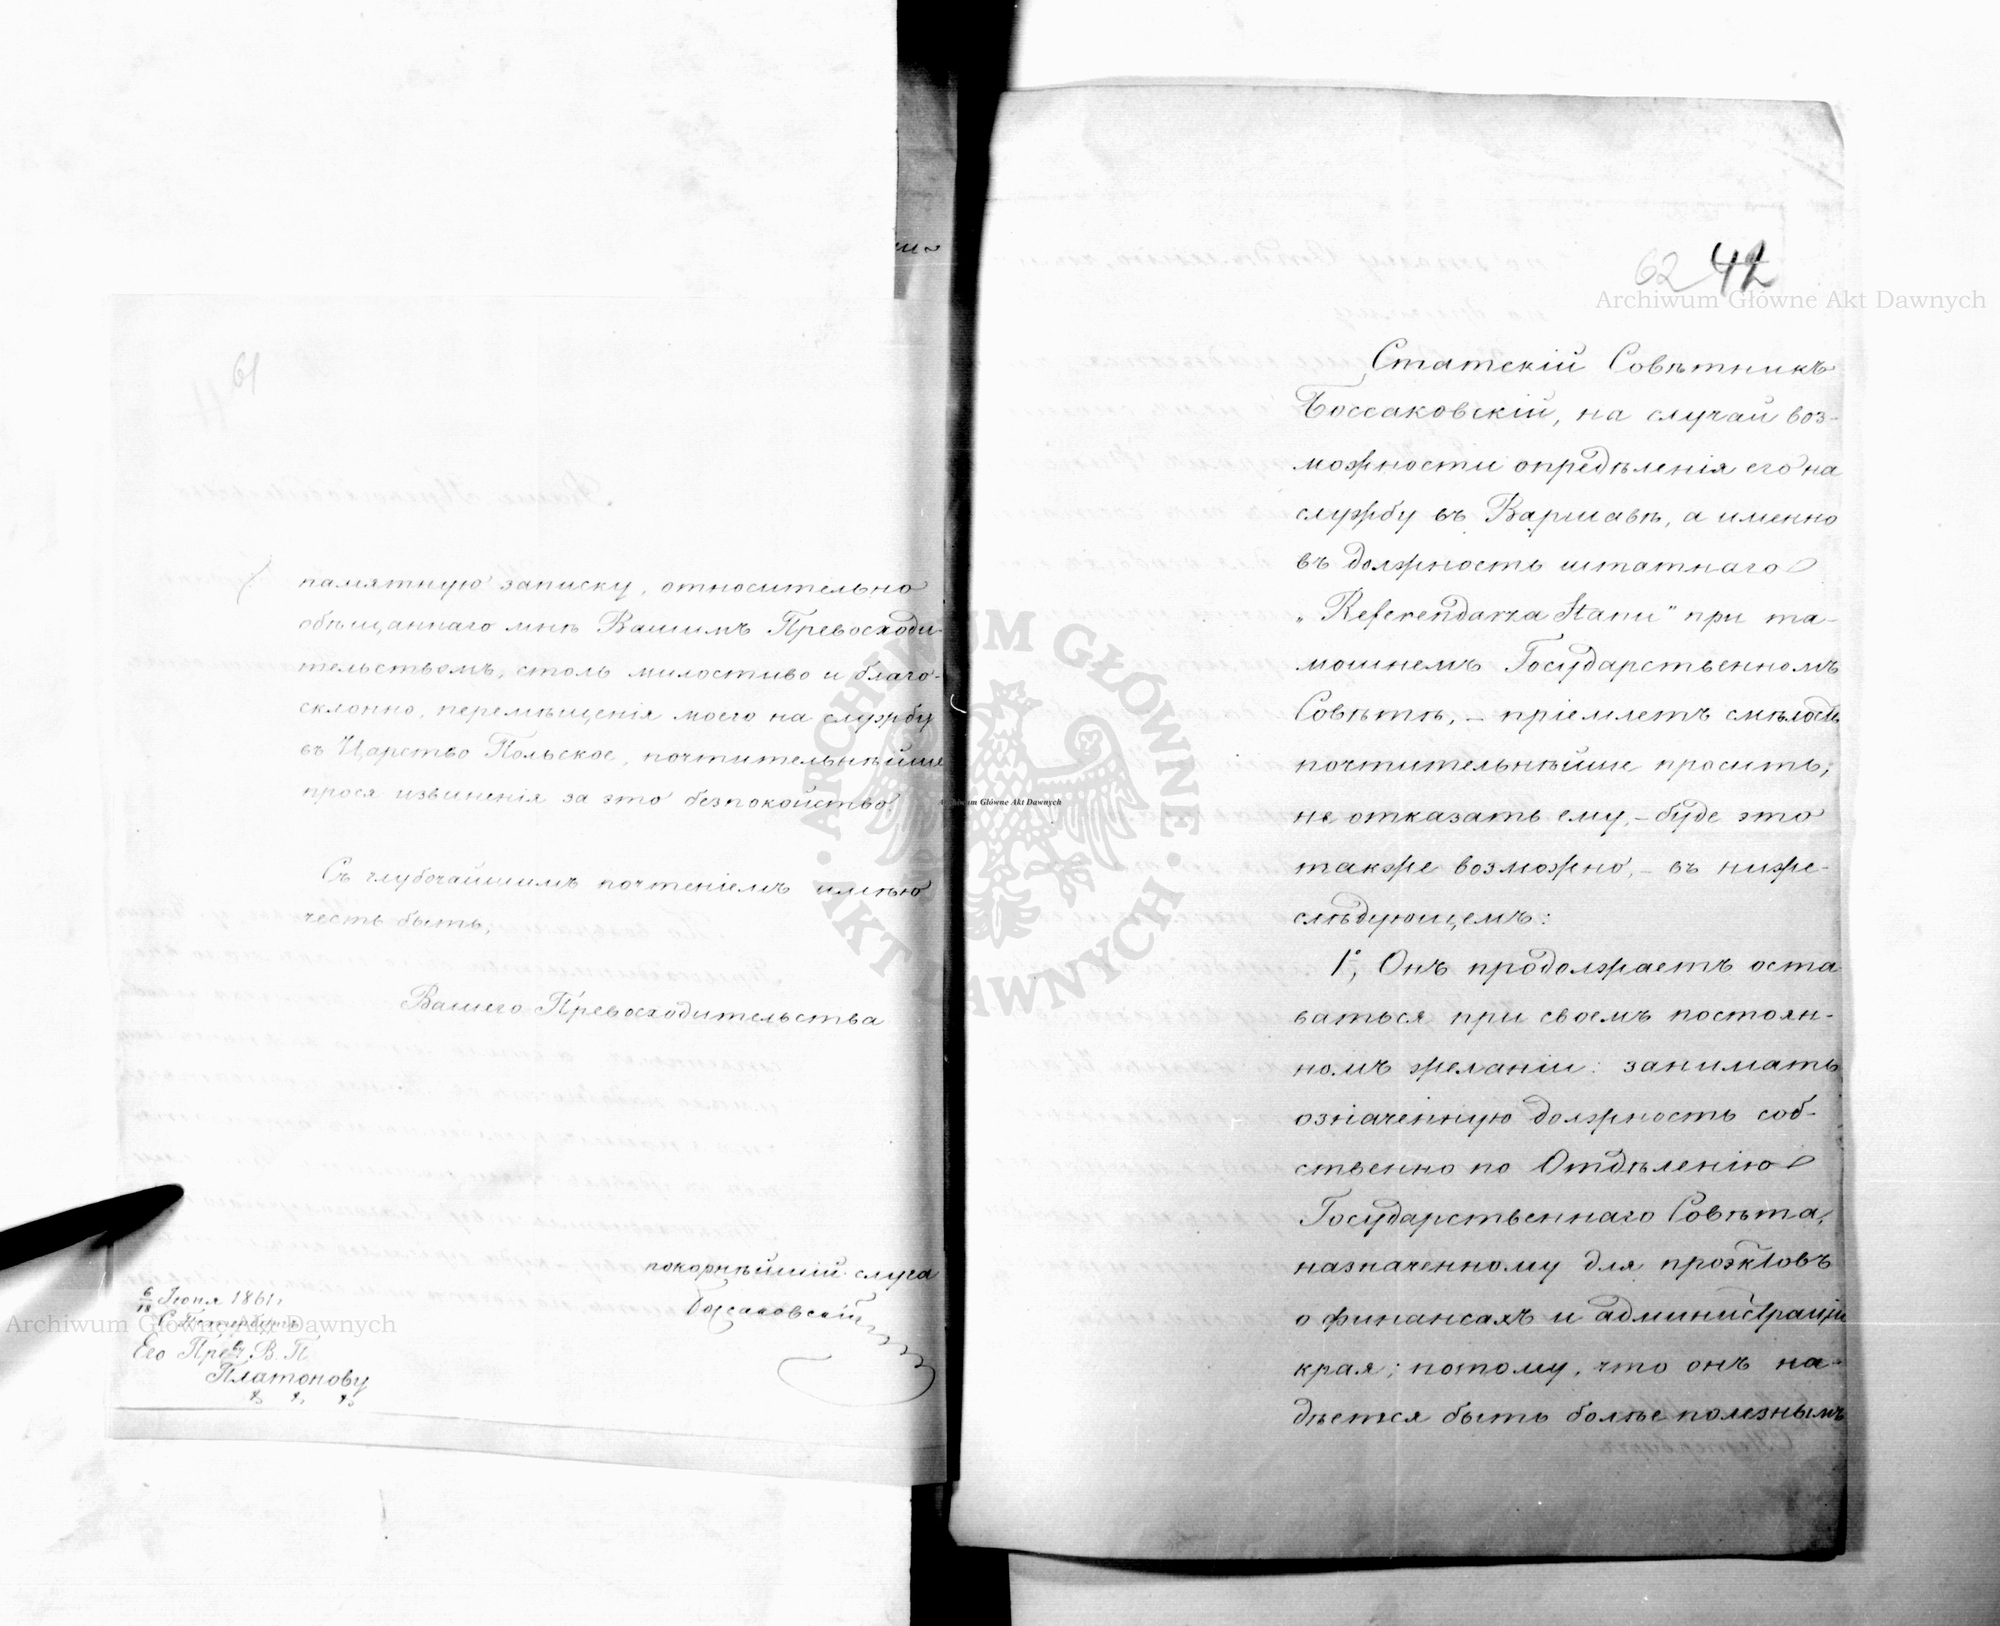 61
памятную записку, относительно
обѣщаннаго мнѣ Вашимъ Превосходи-
тельствомъ, столь милостиво и благо-
склонно, перемѣщенія моего на службу
въ Царство Польское, почтительнѣйше
прося извиненія за это безпокойство.
Съ глубочайшимъ почтеніемъ имѣю
честь быть,
Вашего Превосходительства
покорнѣйшій слуга
Боссаковскій
6/18 Іюня 1861 г.
С. Петербургъ
Его Прев. В. П.
Платонову
62 42
Статскій Совѣтникъ
Боссаковскій, на случай воз-
можности опредѣленія его на
службу въ Варшавѣ, а именно
въ должность штатнаго
„Referendarza Stanu" при та-
мошнемъ Государственномъ
Совѣтѣ, – пріемлетъ смѣлость
почтительнѣйше просить,
не отказать ему, – буде это
также возможно, – въ ниже-
слѣдующемъ:
1°, Онъ продолжаетъ оста
ваться при своемъ постоян-
номъ желаніи: занимать
означенную должность соб-
ственно по Отдѣленію
Государственнаго Совѣта,
назначенному для проэктовъ
о финансахъ и администраціи
края; потому, что онъ на-
дѣется быть болѣе полезнымъ
Archiwum Główne Akt Dawnych
Archiwum Główne Akt Dawnych
Archiwum Główne Akt Dawnych
ARCHIWUM GŁÓWNE
· AKT DAWNYCH ·